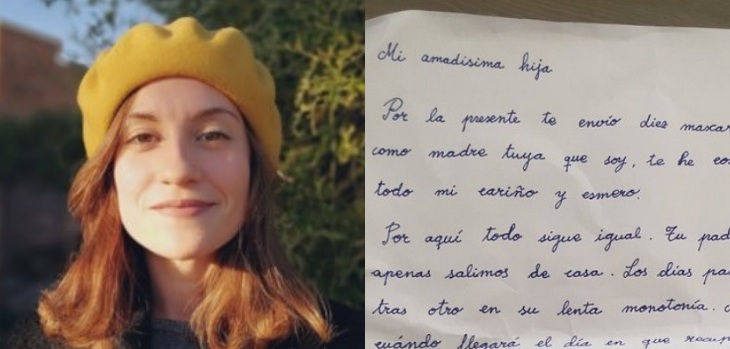 Mi amadisima hija
Por la presente te envío diez
como madre tuya que soy, te he
todo mi cariño y esmero.
Por aquí todo sigue igual. Tu
apenas salimos de casa. Los días
tras otro en su lenta monotonía.
cuándo llegará el día en que